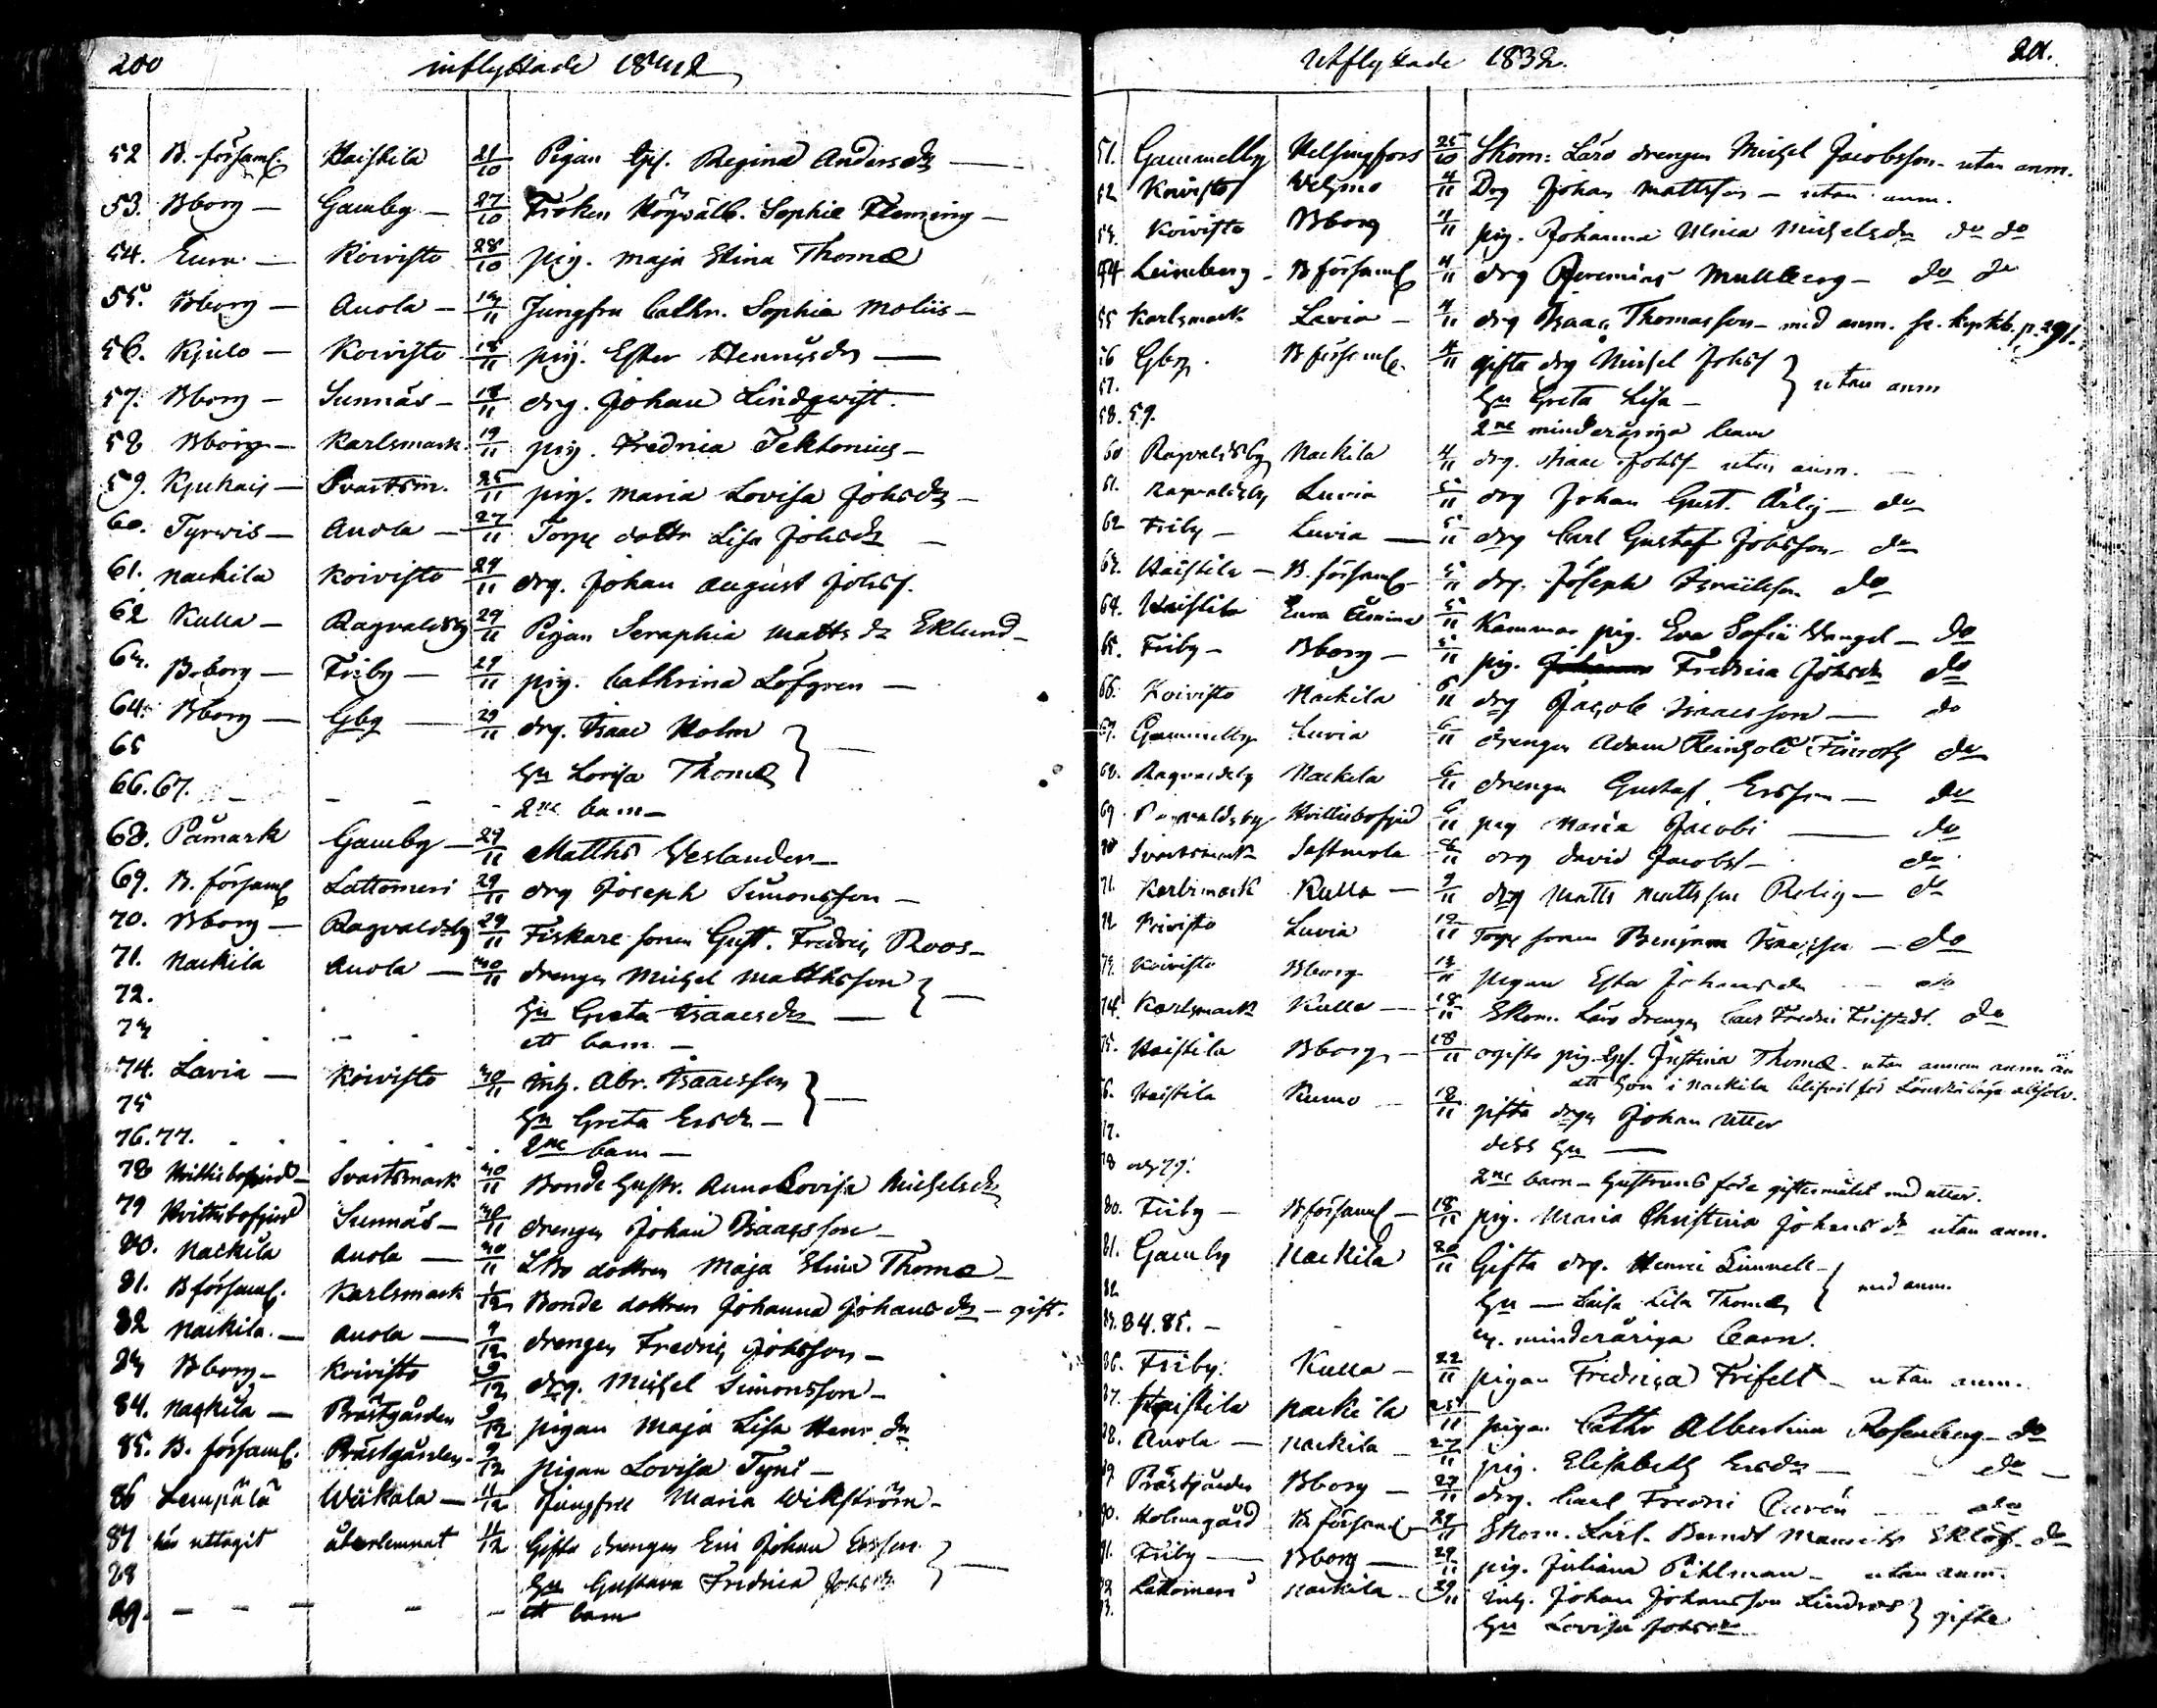 200 inflyttade 1832
52 B. församl. Haistila 21/10 Pigan Regina Andersdr —
53. Bborg — Gamby — 27/10 Fröken Högvälb. Sophie Fleming —
54. Eura — Koivisto 28/10 pig. Maja Stina Thomæ
55. Bborg — Anola — 14/11 Jungfru Cathr. Sophia Moliis —
56. Kjulo — Koivisto 18/11 pig. Ester Henrigsdr —
57. Bborg — Sunnäs — 18/11 drg. Johan Lindqwist.
58 Bborg — Karlsmark. 19/11 pig. Fredrica Tektonius —
59. Kjukais — Svartsm. 25/11 pig. Maria Lovisa Johsdr —
60. Tyrwis — Anola — 27/11 Torp dottr Lisa Johsdr —
61. Nackila Koivisto 29/11 drg. Johan August Johss.
62 Kulla — Ragvaldsby 29/11 Pigan Seraphia Matts dr Eklund —
63. Bborg — Friby — 29/11 pig. Cathrina Löfgren —
64. Bborg — Gbg — 29/11 drg. Isaac Holm
65 Hu Lovisa Thomæ
66. 67. 2ne barn —
68. Påmark Gamby — 29/11 Matths Weslander —
69. B. församl Lattomeri 29/11 drg Joseph Simonsson —
70. Bborg — Ragvaldsby 29/11 Fiskare sonen Gust. Fredric Roos —
71. Nackila Anola — 30/11 drengen Michel Matthsson
72. Hu Greta Isaacsdr —
73 ett barn —
74. Lavia — Koivisto 30/11 Inh. Abr. Isaacsson
75 Hu Greta Ersdr —
76. 77. 2ne barn —
78 Hvittisbofjerd — Svartsmark 30/11 Bonde hustr. Anna Lovisa Michelsdr
79 Hvittisbofjerd Sunnäs — 30/11 drengen Johan Isaacsson —
80. Nackila Anola — 30/11 dottren Maja Stina Thomæ —
81. B församl. Karlsmark 1/12 Bonde dottren Johanna Johansdr — gift.
82 Nackila. — Anola — 9/12 drengen Fredric Johsson —
83 Bborg — Koivisto 9/12 drg. Michel Simonsson —
84. Nackila — Prästgården 9/12 pigan Maja Lisa Hans dr
85. B. församl. Prästgården — 9/12 pigan Lovisa Tyni —
86 Lempälä Wiikala — 11/12 Jungfru Maria Wikström —
87 här uttagit återlemnat 11/12 Gifta drengen Eric Johan Ersson
88 Hu Gustava Fredrica Johsdr
89. — — — ett barn
Utflyttade 1832. 201.
51. Gammelby Helsingfors 25/10 Skom: Läro drengen Michel Jacobsson — utan anm.
52 Koivisto 4/11 Drg Johan Mattsson — utan anm.
53. Koivisto Bborg 4/11 pig. Johanna Ulrica Michelsdr do do
54 Leineberg — B församl 4/11 drg Jeremias Mullberg — do do
55 Karlsmark Lavia — 4/11 drg Isaac Thomasson — med anm. se kyrkb. p. 291.
56 Gbg. B församl. 4/11 gifta drg Michel Johss
57. Hu Greta Lisa — utan anm
58. 59. 2ne minderåriga barn
60 Ragvaldsby Nackila 4/11 drg. Isaac Johss — utan anm.
61. Ragvaldsby Luvia 5/11 drg Johan Gust. Ärlig — do
62 Friby — Luvia — 5/11 drg Carl Gustaf Johsson — do
63. Haistila — B. församl — 5/11 drg. Joseph Israelsson do
64. Haistila Eura 5/11 Kammar pig. Eva Sofia Wangel — do
65. Friby — Bborg — 5/11 pig. Fredrica Johsdr do
66. Koivisto Nackila 6/11 drg Jacob Isaacsson — do
67. Gammelby Luvia 6/11 drengen Adam Reinhold Finroth do
68. Ragvaldsby Nackila 6/11 drengen Gustaf Ersson — do
69 Ragvaldsby Hvittisbofjerd 6/11 pig Maria Jacobi — do
70 Svartsmark Sastmola 8/11 drg David Jacobss — do
71. Karlsmark Kulla — 9/11 drg Matts Mattsson Relig — do
72 Koivisto Luvia 12/11 Torp sonen Benjam Isaacsson — do
73. Koivisto Bborg 13/11 pigan Ester Johansdr — do
74. Karlsmark Kulla — 18/11 Skom. Läro drengen Carl Fredric Fristedt. do
75. Haistila Bborg — 18/11 ogifta pig. Justina Thomæ — utan annan anm. än
att hon i Nackila blifvit för absolv.
76. Haistila Kumo — 18/11 gifta drgn Johan Utter
77. dess Hu —
78 och 79. 2ne barn — hustruns före giftermålet med Utter.
80. Friby — B församl — 18/11 pig. Maria Christina Johans dr utan anm.
81. Gamby Nackila 20/11 Gifta drg. Henric Linnell —
82. Hu — Caisa Lisa Thomæ med anm.
83. 84. 85. — 3. minderåriga barn.
86. Friby. Kulla — 22/11 pigan Fredrica Frifelt — utan anm.
87. Haistila Nackila 25/11 pigan Cathr Albertina Rosenberg — do
88. Anola — Nackila — 27/11 pig. Elisabeth Ersdr — do —
89. Prästgården Bborg — 27/11 drg. Carl Fredric — do
90. Holmagård B. församl — 29/11 Skom. Lärl. Berndt Maurits Eklöf. do
91. Friby — Bborg — 29/11 pig. Juliana Pihlman — utan anm.
92 Lattomeri Nackila — 29/11 Inh. Johan Johansson Lindroos
93. Hu Lovisa Johsdr gifta